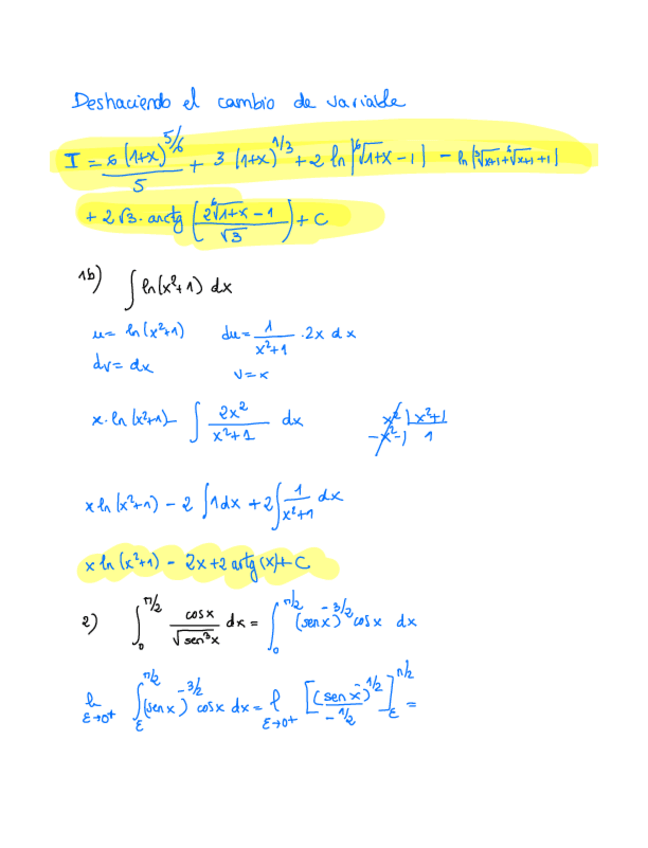 Deshaciendo el cambio de variable
I = 6 (1+x)^5/6 / 5 + 3 (1+x)^1/3 + 2 ln |⁶√1+x - 1| - ln |³√x+1 + ⁶√x+1 + 1|
+ 2√3 · arctg (2 ⁶√1+x - 1 / √3) + C
1b) ∫ ln(x²+1) dx
u = ln(x²+1) du = 1/x²+1 · 2x dx
dv = dx v = x
x · ln(x²+1) - ∫ 2x²/x²+1 dx x² | x²+1
-x²-1 1
x ln(x²+1) - 2 ∫ 1dx + 2 ∫ 1/x²+1 dx
x ln(x²+1) - 2x + 2 artg(x) + C
2) ∫₀^π/2 cosx/√sen³x dx = ∫₀^π/2 (senx)^-3/2 cosx dx
l ε→0+ ∫_ε^π/2 (senx)^-3/2 cosx dx = l ε→0+ [(senx)^-1/2 / -1/2]_ε^π/2 =